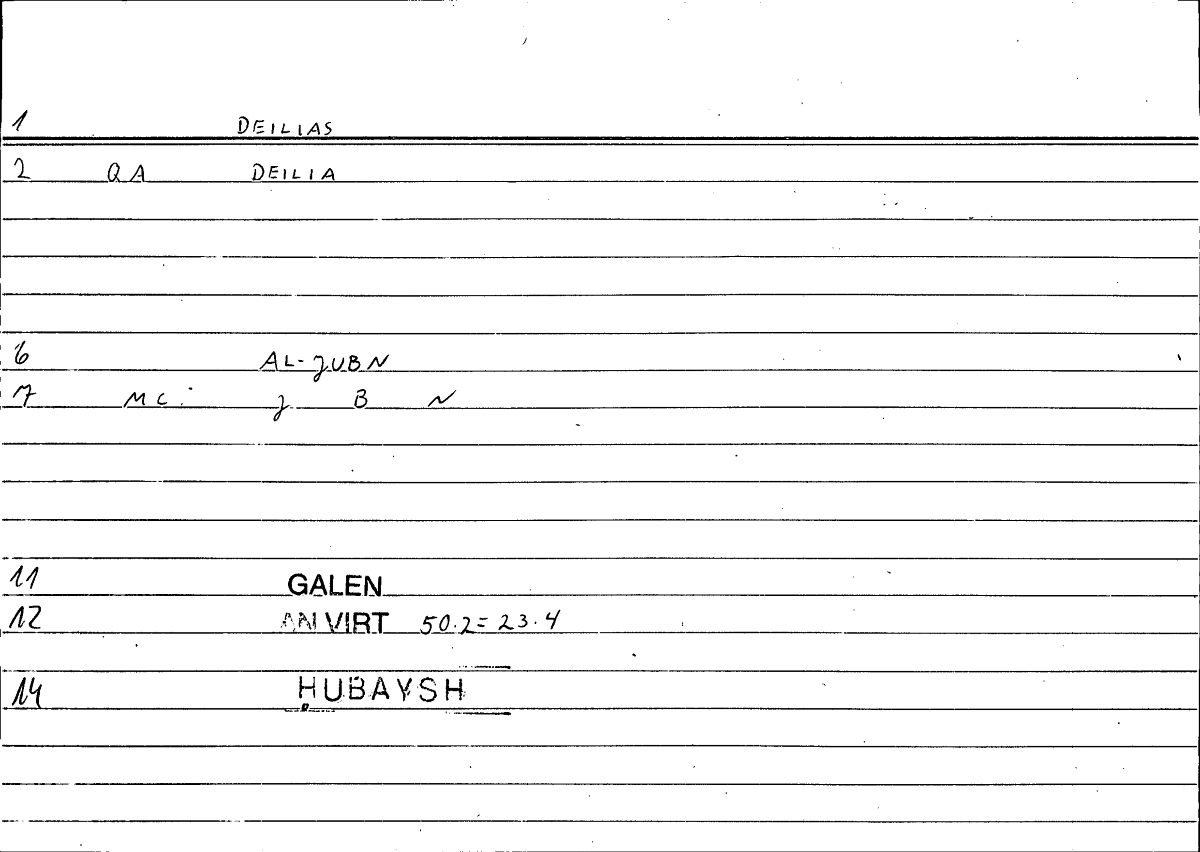 1 DEILIAS
2 QA DEILIA
6 AL-JUBN
7 MC: J B N
11 GALEN
12 AN VIRT 50.2= 23.4
14 ḤUBAYSH